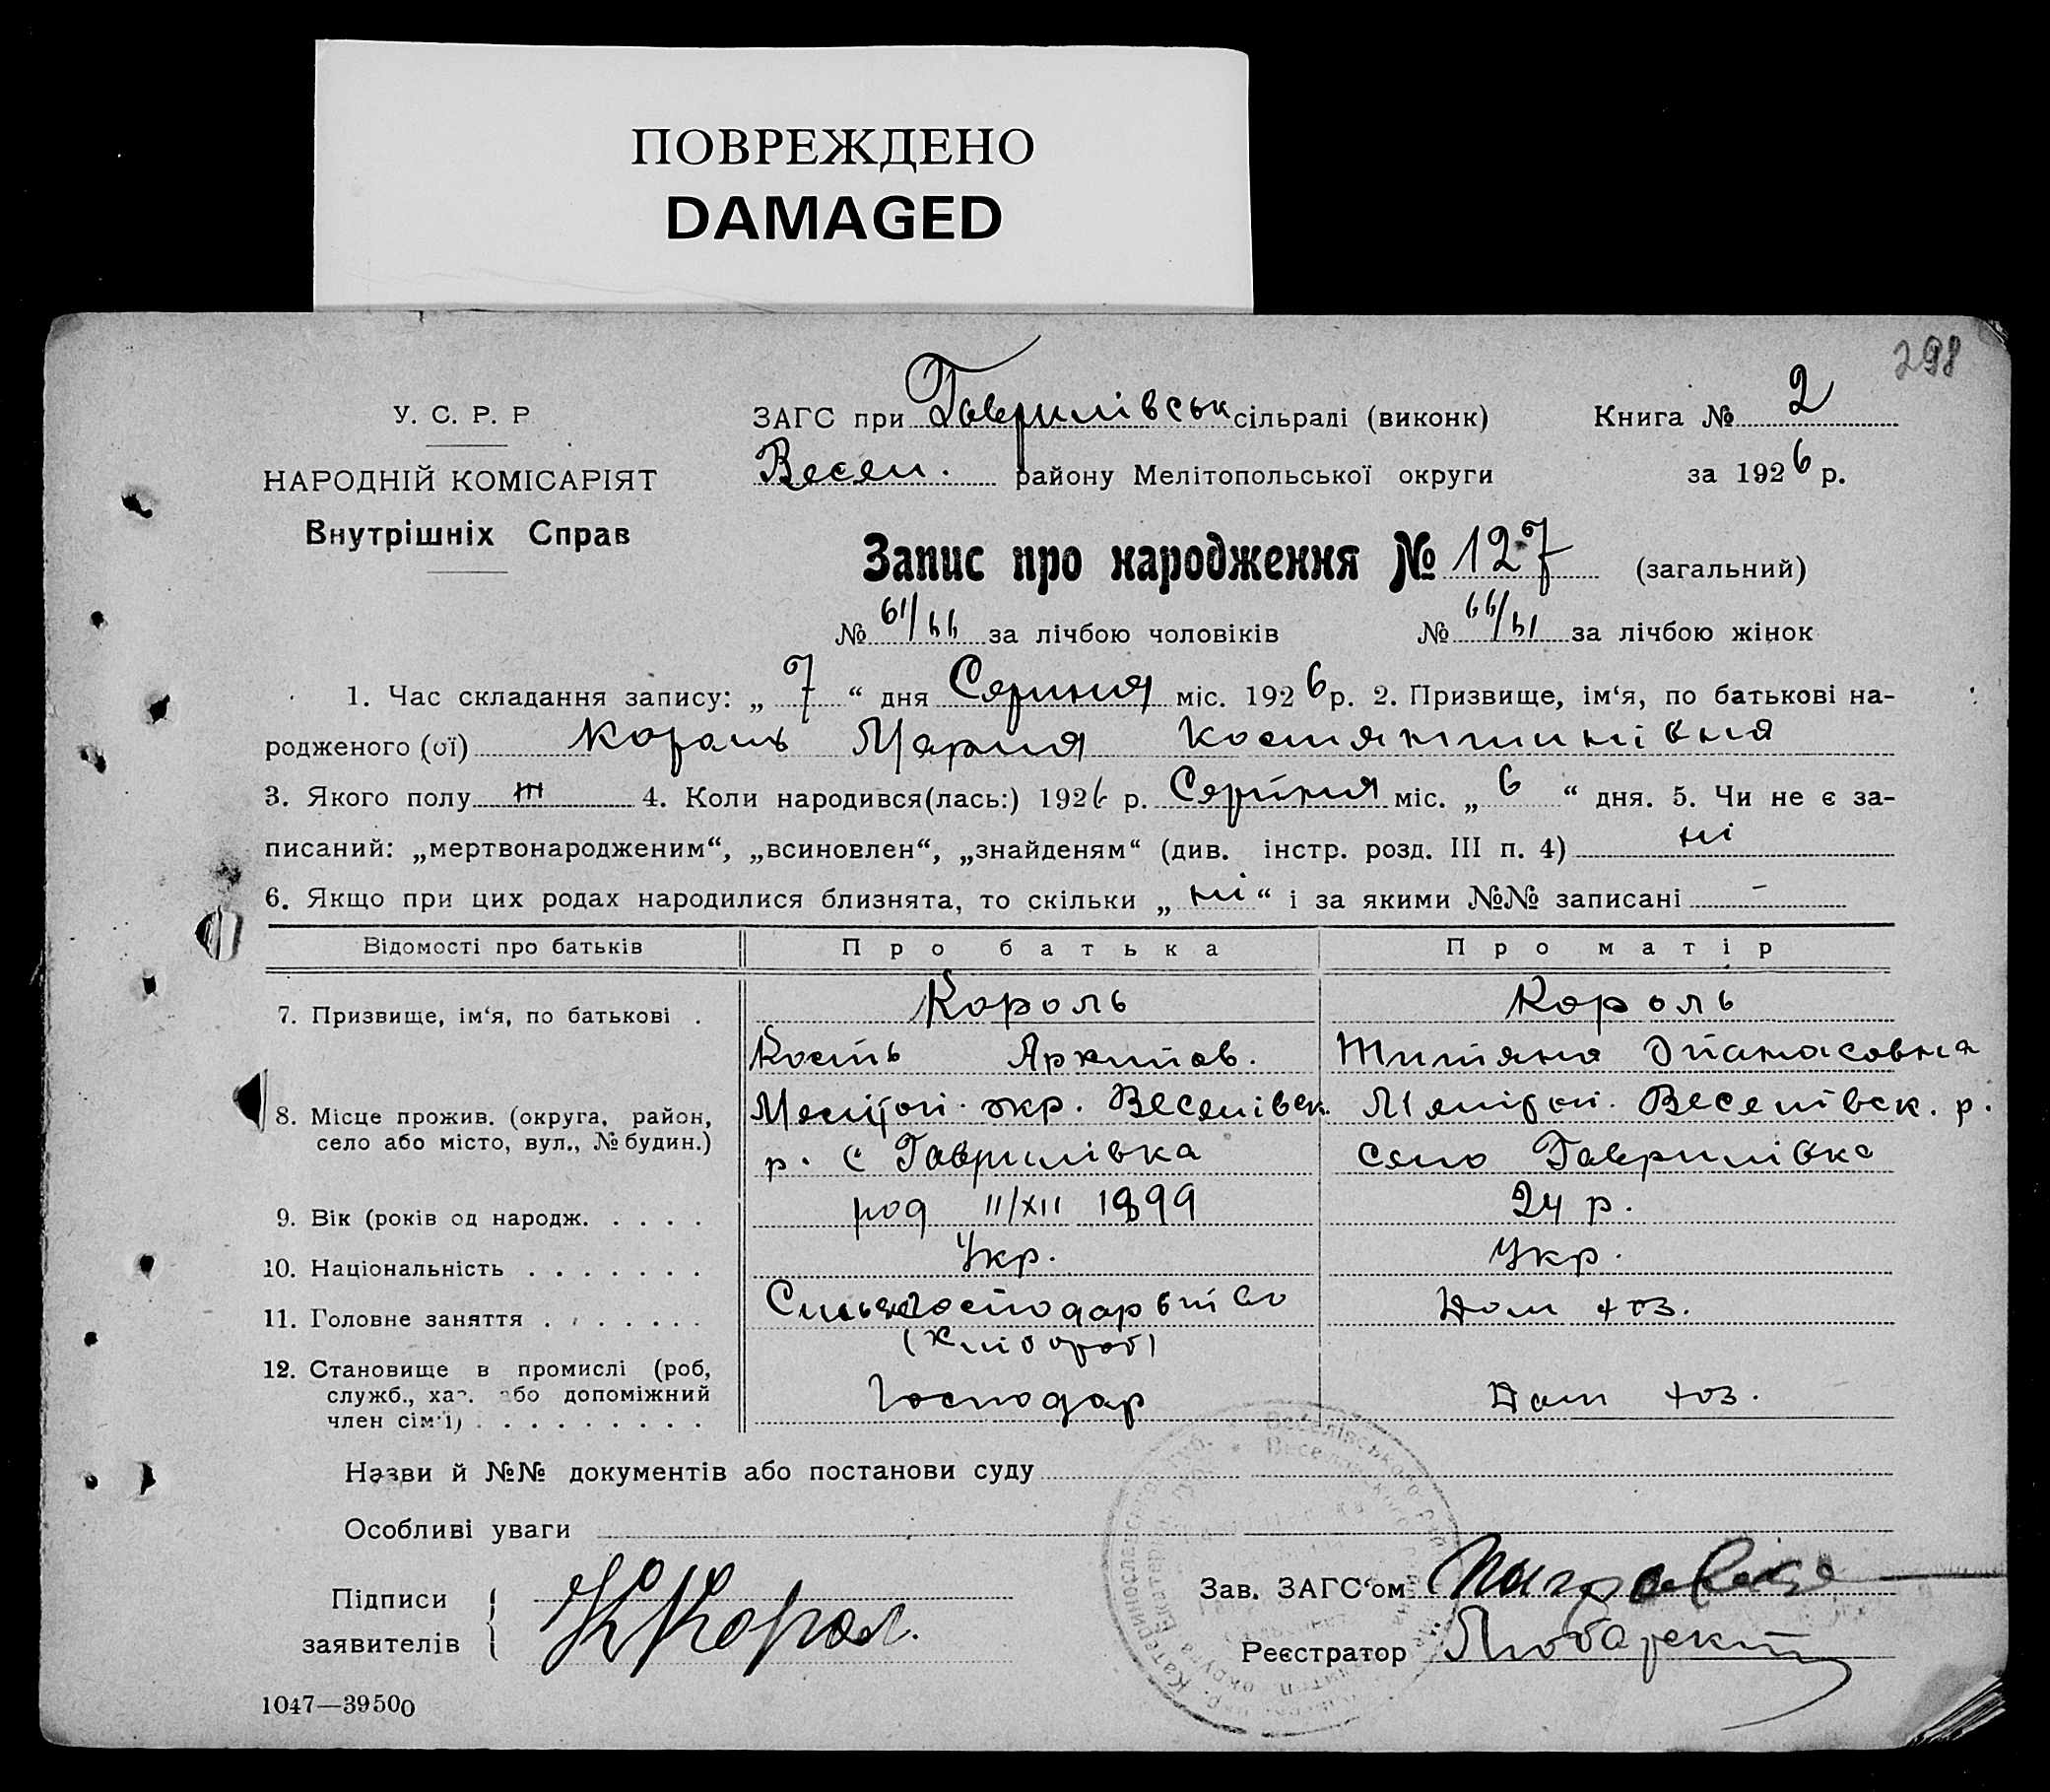 ПОВРЕЖДЕНО
DAMAGED
298
У. С. Р. Р
НАРОДНІЙ КОМІСАРІЯТ
Внутрішніх Справ
ЗАГС при Гаврилівськ сільраді (виконк)
Весел. району Мелітопольської округи
Книга № 2
за 1926 р.
Запис про народження № 127 (загальний)
№ 61/66 за лічбою чоловіків № 66/61 за лічбою жінок
1. Час складання запису: „ 7 “ дня Серпня міс. 1926 р. 2. Призвище, ім‘я, по батькові на-
родженого (ої) Король Марія Костянтинівна
3. Якого полу ж 4. Коли народився(лась:) 1926 р. Серпня міс. „ 6 “ дня. 5. Чи не є за-
писаний: „мертвонародженим“, „всиновлен“, „знайденям“ (див. інстр. розд. III п. 4) ні
6. Якщо при цих родах народилися близнята, то скільки „ ні “ і за якими №№ записані –
Відомості про батьків Про батька Про матір
7. Призвище, ім‘я, по батькові . Король Король
Кость Архипов. Титяна Опанасовна
8. Місце прожив. (округа, район, Меліпол. окр. Веселівск. Меліпол. Веселівск. р.
село або місто, вул., № будин.) р. с Гаврилівка село Гаврилівка
9. Вік (років од народж. . . . . род 11/XII 1899 24 р.
10. Національність . . . . . . . Укр. Укр.
11. Головне заняття . . . . . . . Сильськогосподарьство Дом хоз.
(хлібороб)
12. Становище в промислі (роб,
служб., хаз. або допоміжний Господар Дом хоз.
член сім‘ї) . . . . . . . . .
Назви й №№ документів або постанови суду
Особливі уваги
Підписи
заявителів К Корол.
Зав. ЗАГС‘ом
Реєстратор Любарский
1047—39500